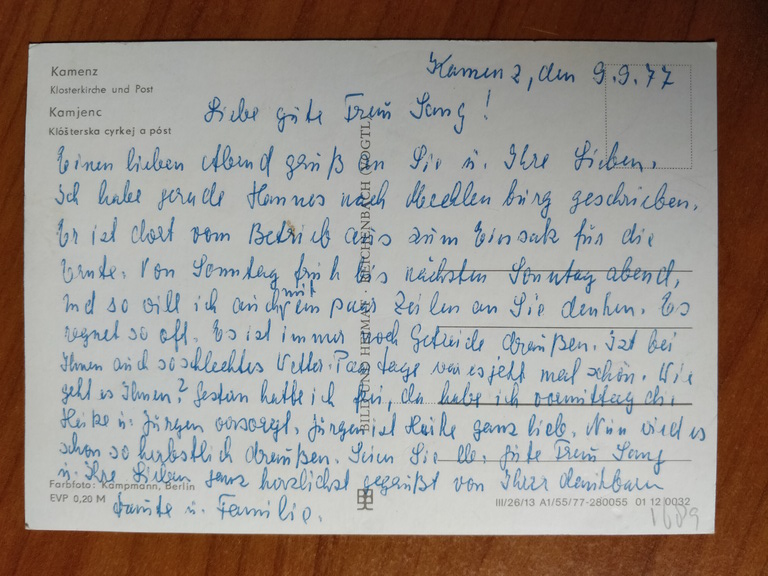 Kamenz
Klosterkirche und Post
Kamjenc
Klóšterska cyrkej a póst
Kamenz, den 9.9.77
Liebe gute Frau Sang!
Einen lieben Abend gruß an Sie u. Ihre Lieben.
Ich habe gerade Hannes nach Mecklenburg geschrieben.
Er ist dort vom Betrieb aus zum Einsatz für die
Ernte. Von Sonntag früh bis nächsten Sonntag abend,
und so will ich auch mit ein paar Zeilen an Sie denken. Es
regnet so oft. Es ist immer noch Getreide draußen. Ist bei
Ihnen auch so schlechtes Wetter. Paar tage war es jetzt mal schön. Wie
geht es Ihnen? Gestern hatte ich frei, da habe ich vormittag die
Heike u. Jürgen versorgt. Jürgen ist Heike ganz lieb. Nun wird es
schon so herbstlich draußen. Seien Sie lb. gute Frau Sang
u. Ihre Lieben ganz herzlichst gegrüßt von Ihrer dankbaren
u. Familie.
BILD UND HEIMAT REICHENBACH (VOGTL)
Farbfoto: Kampmann, Berlin
EVP 0,20 M
III/26/13 A1/55/77-280055 01 12 0032